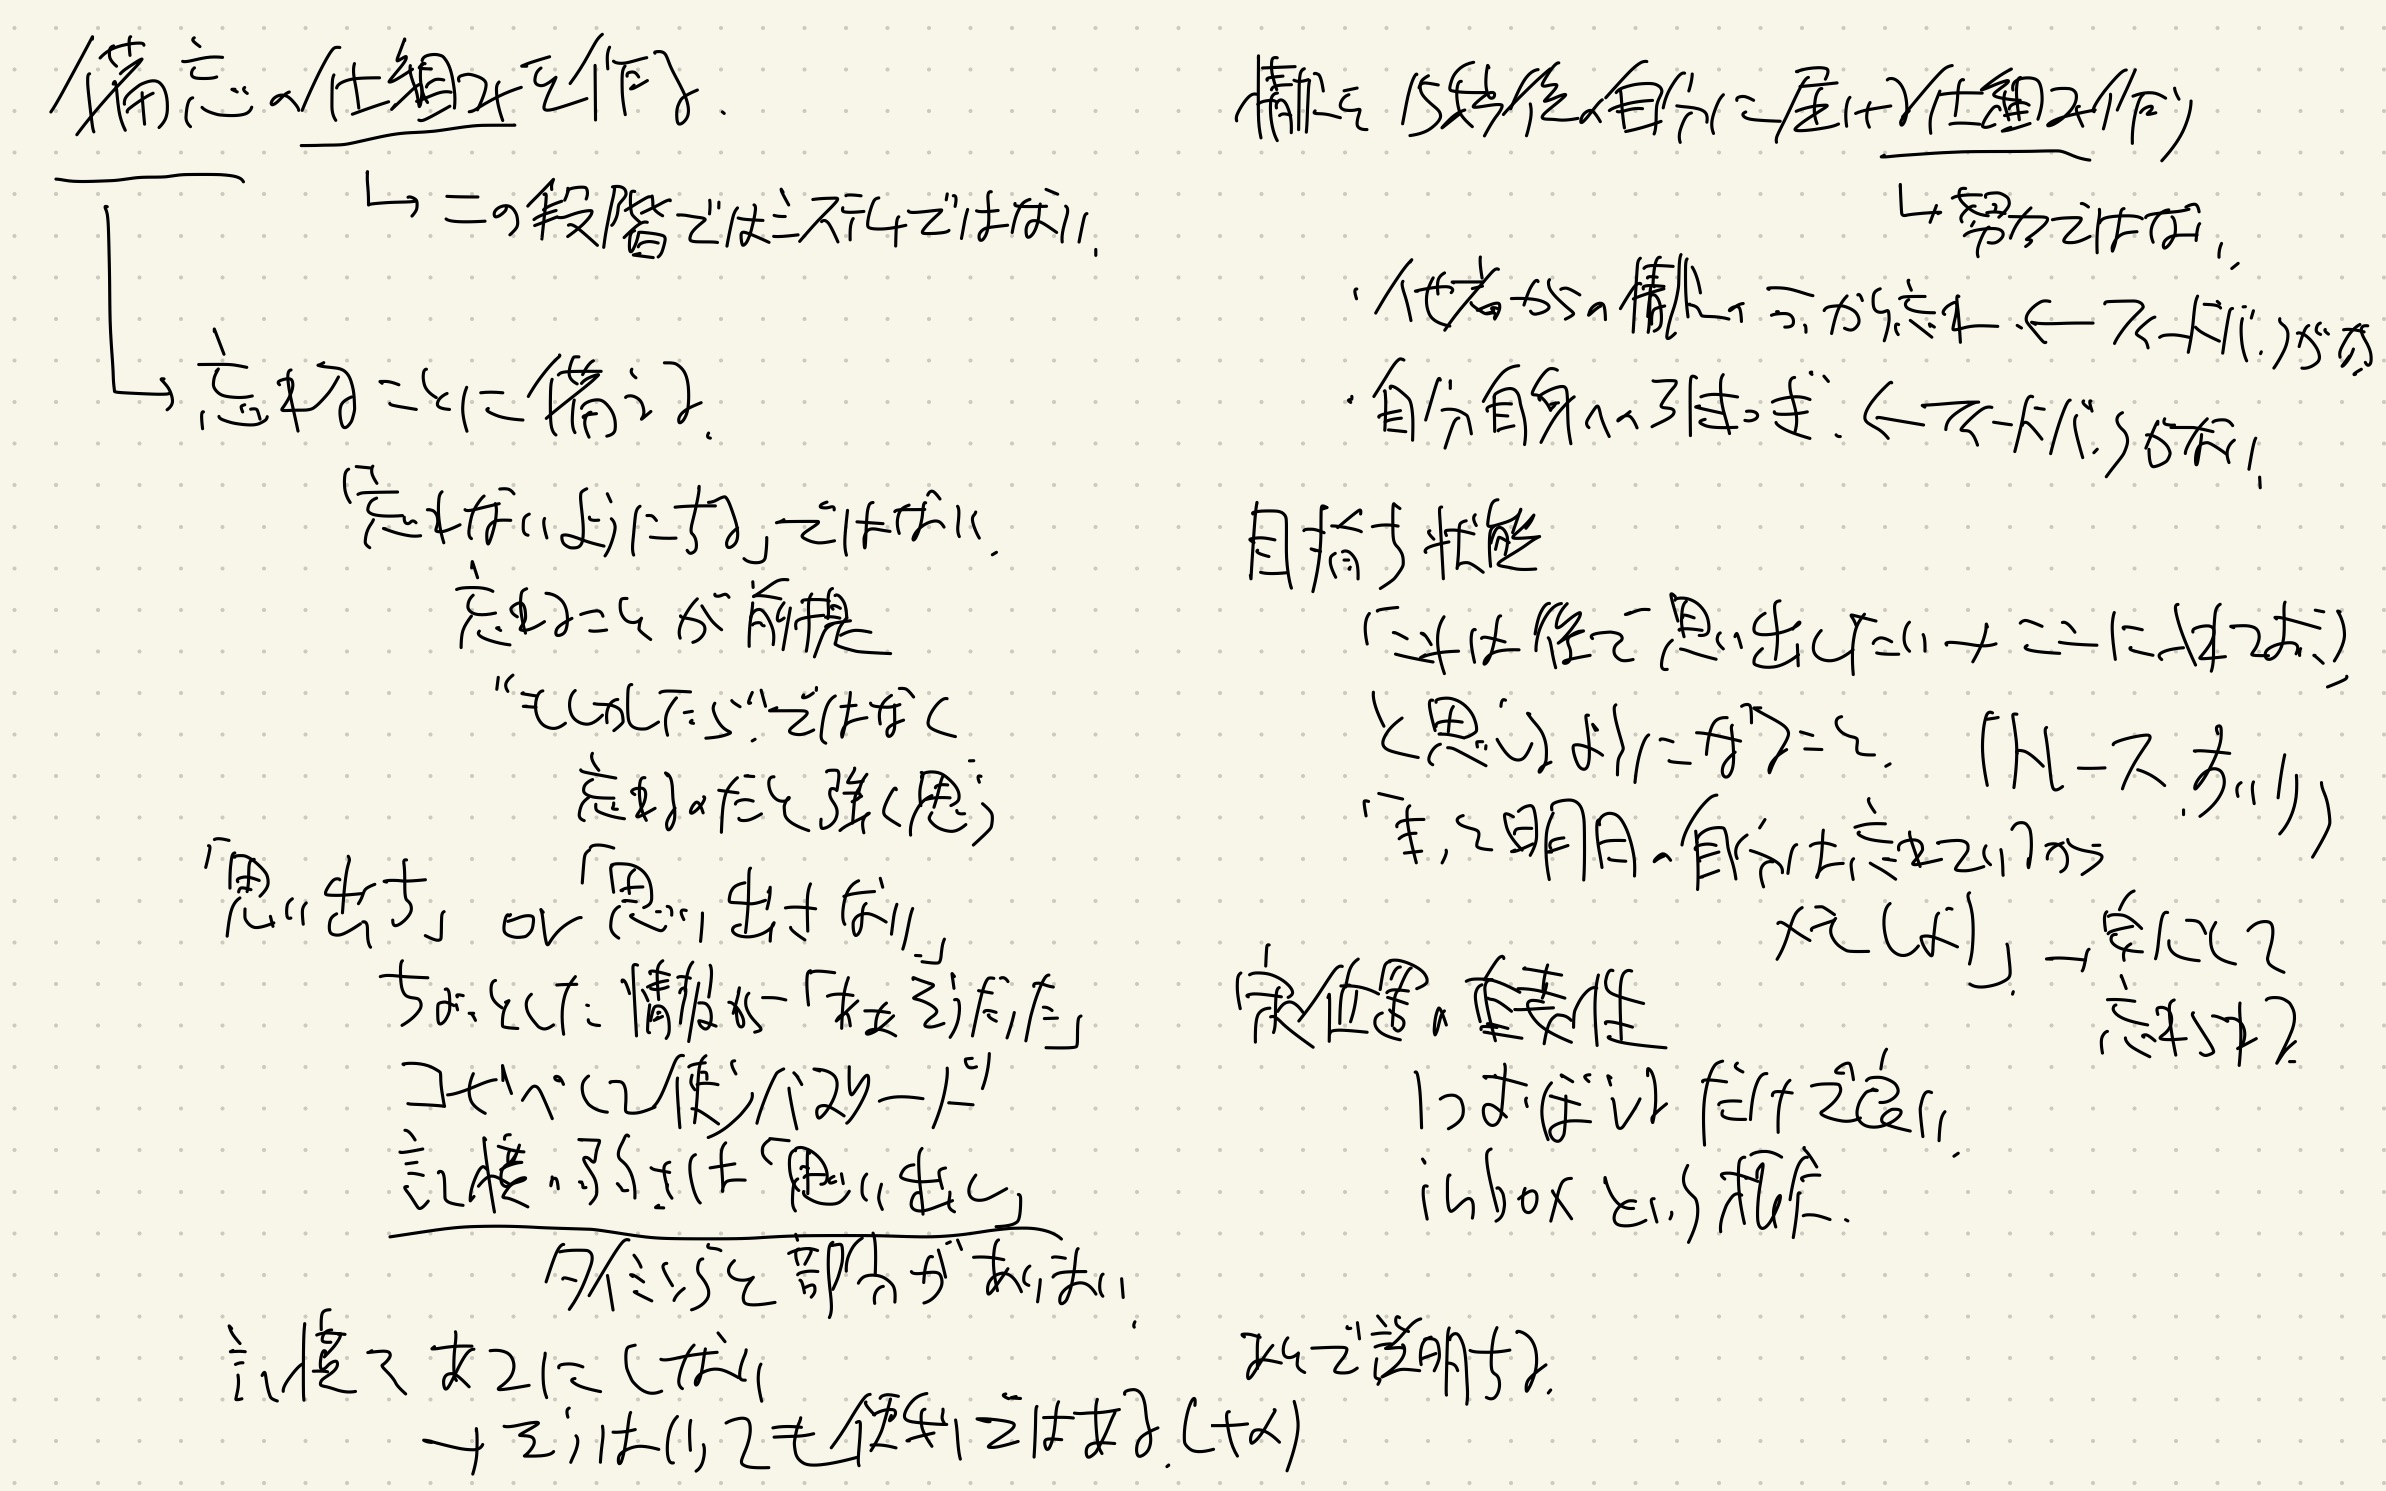 備忘の仕組みを作る.
↳ この段階ではシステムではない.
→ 忘れることに備える.
「忘れないようにする」ではない.
忘れることが前提
"もしかしたら"ではなく
忘れるのだと強く思う
「思い出す」 or 「思い出さない」
ちょっとした情報が「ああそうだった」
コピペして使うパスワード
記憶の弱さは「思い出し」
タイミングと部分があいまい.
記憶をあてにしない
→ そうはいっても便利ではある.(+α)
情報を 15秒後の自分に届ける仕組み作り
↳ 努力ではない.
・他者からの情報の言づが忘れ ← フィードバックがある
・自分自身への引きつぎ. ← フィードバックがない.
目指す状態
「これは後で思い出したい → ここに入れておこう」
と思うようになること. (トリースあいり)
「きっと明日の自分は忘れているから
メモしよう」 → 癖にして
忘れられる
定位置の重要性
1つおぼえるだけで良い.
inboxという視点.
あとで説明する.